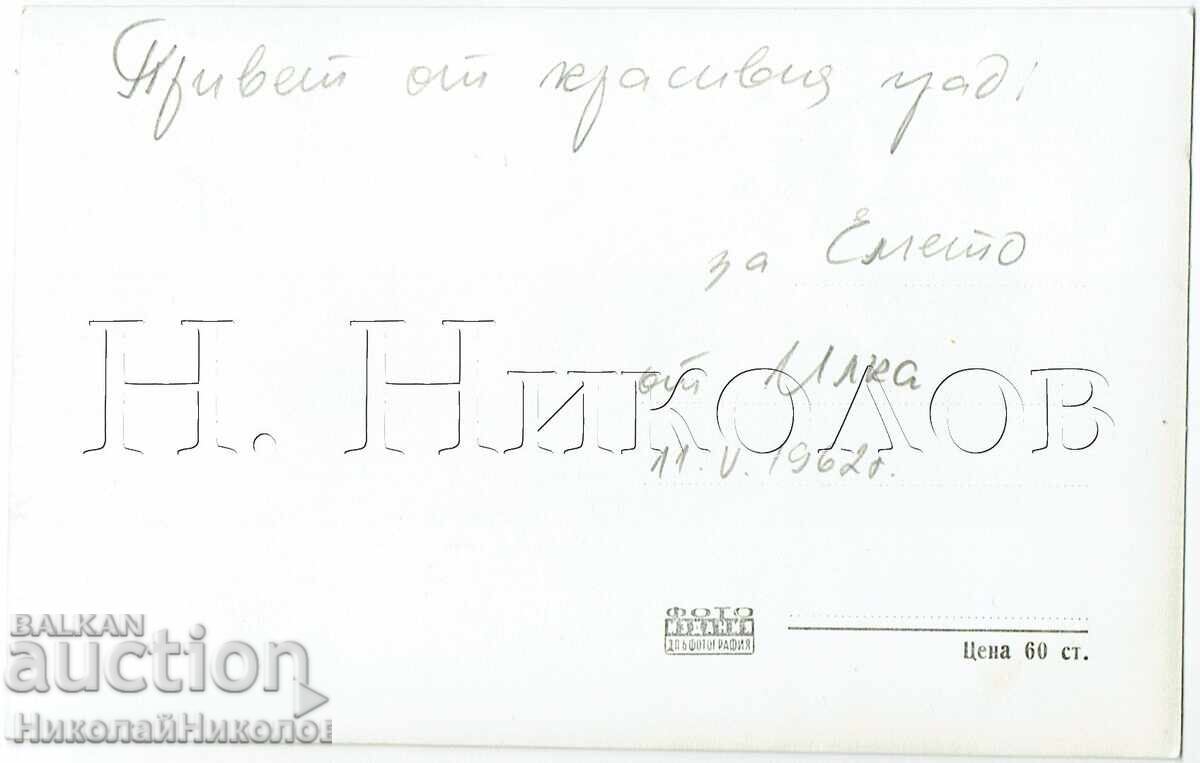 Привет от красивия град!
за Емето
от Илка
Н. Николов
11.V.1962г.
ФОТО
ДП БЪЛГ. ФОТОГРАФИЯ
Цена 60 ст.
BALKAN
auction
НиколайНиколов